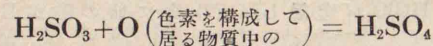 H₂SO₃+O(色素を構成して居る物質中の)=H₂SO₄